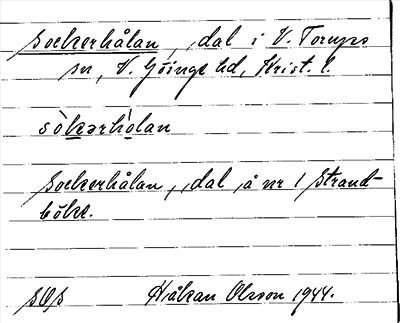 Sockerhålan, dal i V. Torups
sn, V. Göinge hd, Krist. l.
sò̀kərhólan
Sockerhålan, dal å nr 1 Strand-
böke.
SOs Håkan Olsson 1944.